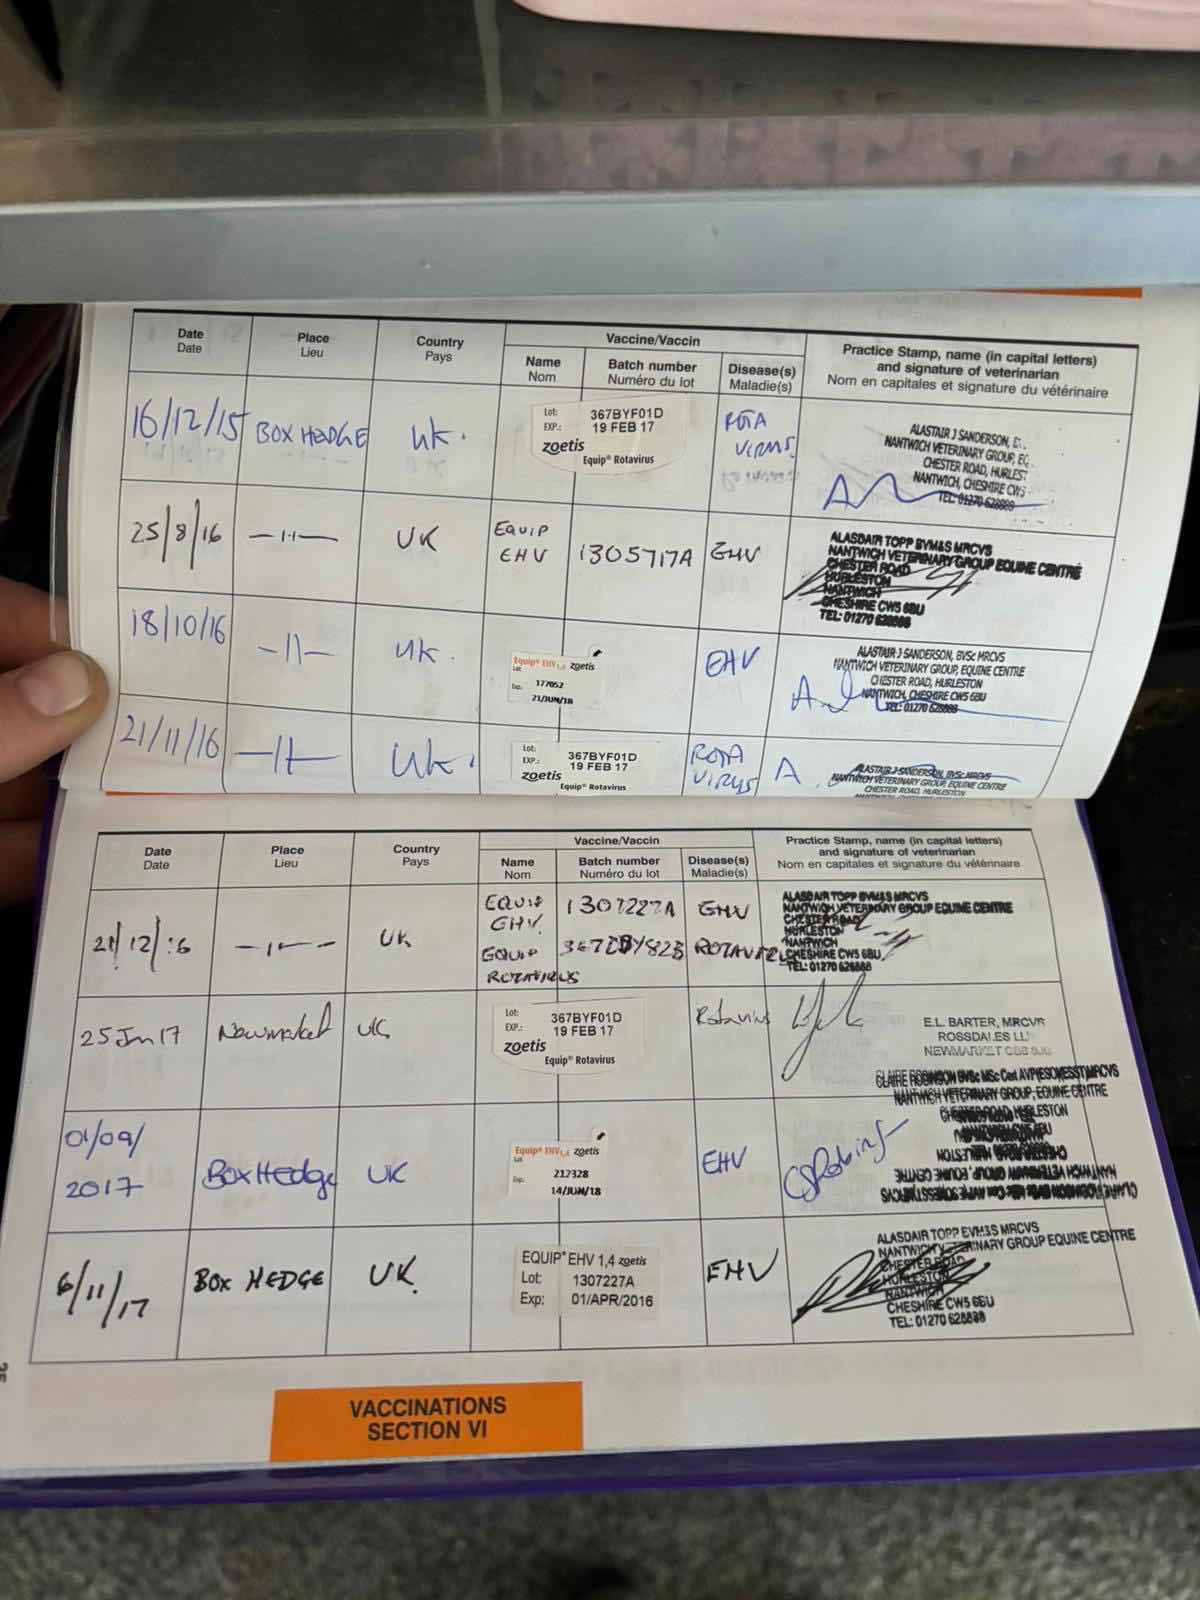 Date
Date
Place
Lieu
Country
Pays
Vaccine/Vaccin
Name
Nom
Batch number
Numéro du lot
Disease(s)
Maladie(s)
Practice Stamp, name (in capital letters)
and signature of veterinarian
Nom en capitales et signature du vétérinaire
16/12/15
BOX HEDGE
UK.
Lot: 367BYF01D
EXP.: 19 FEB 17
zoetis
Equip® Rotavirus
ROTA
VIRUS.
ALASTAIR J SANDERSON,
NANTWICH VETERINARY GROUP, EQ
CHESTER ROAD, HURLEST
NANTWICH, CHESHIRE CW5
TEL: 01270 628888
25/8/16
—11—
UK
EQUIP
EHV
1305717A
EHV
ALASDAIR TOPP BVM&S MRCVS
NANTWICH VETERINARY GROUP EQUINE CENTRE
CHESTER ROAD
HURLESTON
NANTWICH
CHESHIRE CW5 6BU
TEL: 01270 628888
18/10/16
—11—
UK.
Equip® EHV1,4 zoetis
Lot:
177052
Exp.
21/JUN/18
EHV
ALASTAIR J SANDERSON, BVSc MRCVS
NANTWICH VETERINARY GROUP, EQUINE CENTRE
CHESTER ROAD, HURLESTON
NANTWICH, CHESHIRE CW5 6BU
TEL: 01270 628888
21/11/16
—11—
UK.
Lot: 367BYF01D
EXP.: 19 FEB 17
zoetis
Equip® Rotavirus
ROTA
VIRUS
ALASTAIR J SANDERSON, BVSc MRCVS
NANTWICH VETERINARY GROUP, EQUINE CENTRE
CHESTER ROAD, HURLESTON
Date
Date
Place
Lieu
Country
Pays
Vaccine/Vaccin
Name
Nom
Batch number
Numéro du lot
Disease(s)
Maladie(s)
Practice Stamp, name (in capital letters)
and signature of veterinarian
Nom en capitales et signature du vétérinaire
21/12/16
—11—
UK
EQUIP
EHV.
1307227A
EHV
EQUIP
ROTAVIRUS
ALASDAIR TOPP BVM&S MRCVS
NANTWICH VETERINARY GROUP EQUINE CENTRE
CHESTER ROAD
HURLESTON
NANTWICH
CHESHIRE CW5 6BU
TEL: 01270 628888
25 Jan 17
Newmarket
UK
Lot: 367BYF01D
EXP.: 19 FEB 17
zoetis
Equip® Rotavirus
Rotavirus
E.L. BARTER, MRCVS
ROSSDALES LL
NEWMARKET CB8
01/09/
2017
Box Hedge
UK
Equip® EHV1,4 zoetis
Lot:
217328
Exp.
14/JUN/18
EHV
CSRobinson
CLAIRE ROBINSON BVSc MSc Cert AVP(ESOMESST) MRCVS
NANTWICH VETERINARY GROUP, EQUINE CENTRE
CHESTER ROAD, HURLESTON
6/11/17
BOX HEDGE
UK
EQUIP® EHV 1,4 zoetis
Lot: 1307227A
Exp: 01/APR/2016
EHV
ALASDAIR TOPP BVM&S MRCVS
NANTWICH VETERINARY GROUP EQUINE CENTRE
CHESTER ROAD
HURLESTON
NANTWICH
CHESHIRE CW5 6BU
TEL: 01270 628888
VACCINATIONS
SECTION VI